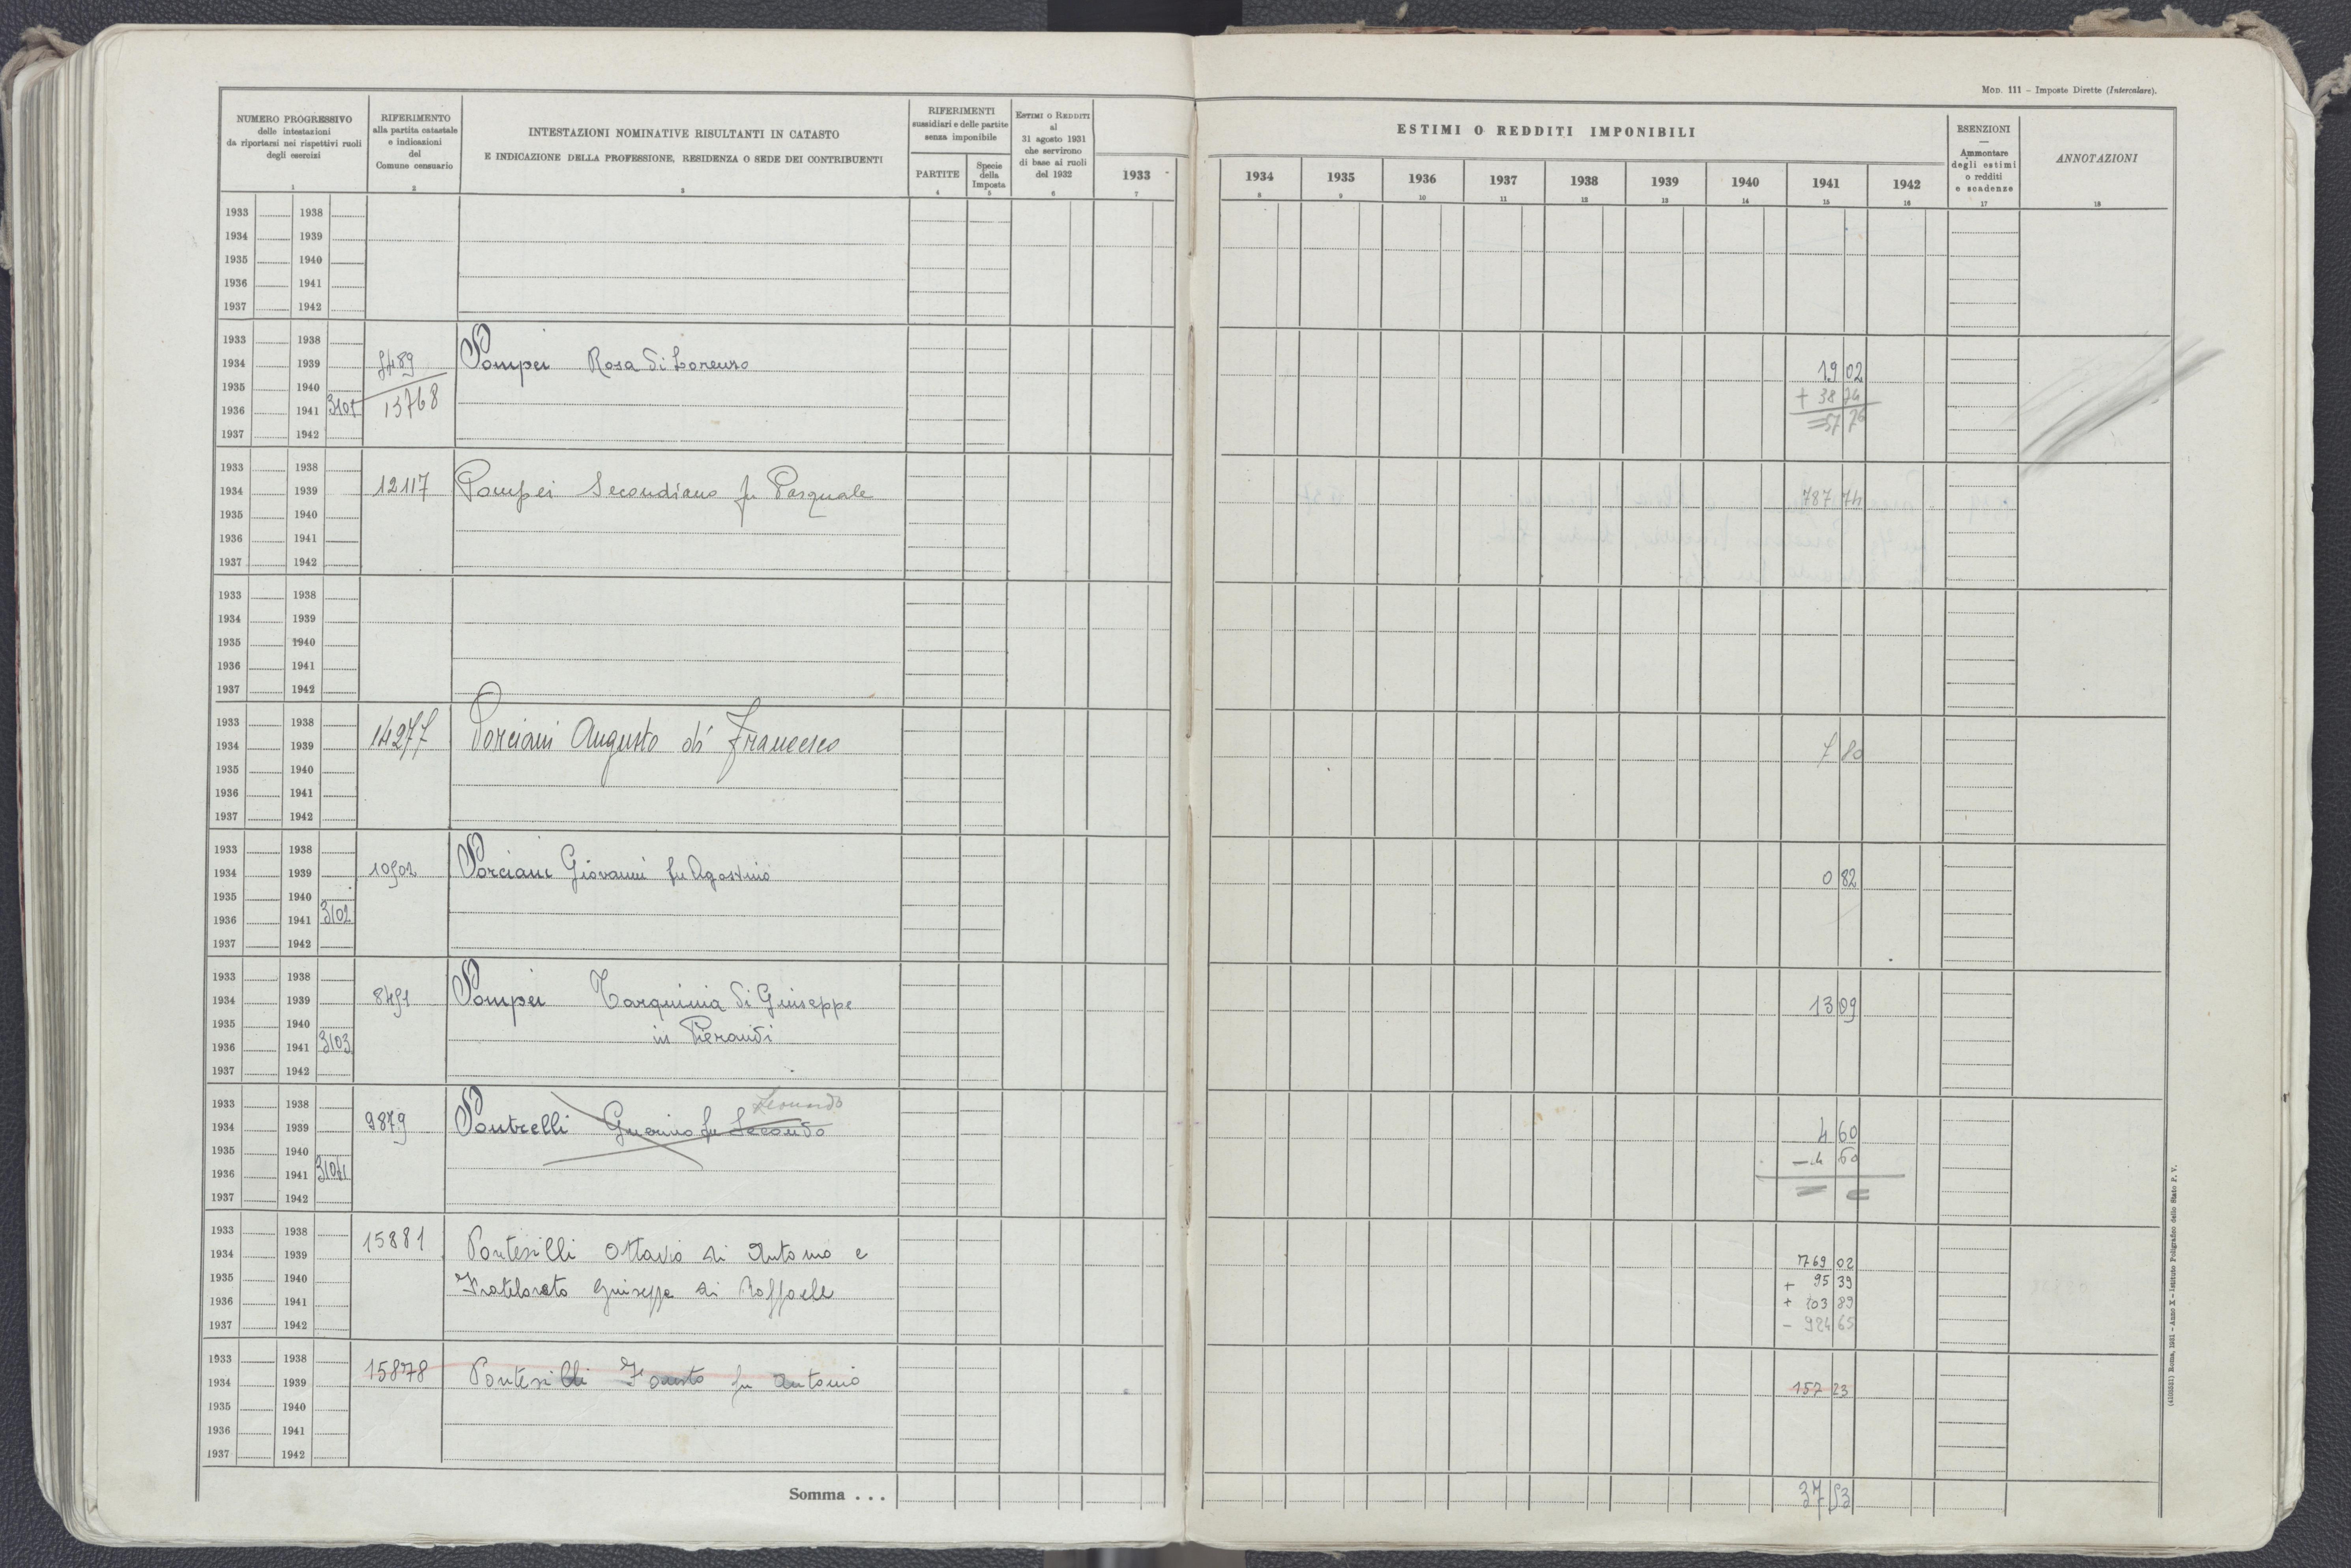 MOD. 111 – Imposte Dirette (Intercalare).
NUMERO PROGRESSIVO
delle intestazioni
da riportarsi nei rispettivi ruoli
degli esercizi
1
RIFERIMENTO
alla partita catastale
e indicazioni
del
Comune censuario
2
INTESTAZIONI NOMINATIVE RISULTANTI IN CATASTO
E INDICAZIONE DELLA PROFESSIONE, RESIDENZA O SEDE DEI CONTRIBUENTI
3
RIFERIMENTI
sussidiari e delle partite
senza imponibile
PARTITE
4
Specie
della
Imposta
5
ESTIMI O REDDITI
al
31 agosto 1931
che servirono
di base ai ruoli
del 1932
6
ESTIMI O REDDITI IMPONIBILI
1933
7
1934
8
1935
9
1936
10
1937
11
1938
12
1939
13
1940
14
1941
15
1942
16
ESENZIONI
—
Ammontare
degli estimi
o redditi
e scadenze
17
ANNOTAZIONI
18
1933 1938
1934 1939
1935 1940
1936 1941
1937 1942
1933 1938
1934 1939 8489 Pompei Rosa di Lorenzo 19 02
1935 1940
1936 1941 3101 13768 + 38 74
1937 1942 = 57 76
1933 1938
1934 1939 12117 Pompei Secondiano fu Pasquale 787 74
1935 1940
1936 1941
1937 1942
1933 1938
1934 1939
1935 1940
1936 1941
1937 1942
1933 1938
1934 1939 14277 Porciani Augusto di Francesco 7 80
1935 1940
1936 1941
1937 1942
1933 1938
1934 1939 10902 Porciani Giovanni fu Agostino 0 82
1935 1940
1936 1941 3102
1937 1942
1933 1938
1934 1939 8491 Pompei Tarquinia di Giuseppe 13 09
1935 1940 in Pierandi
1936 1941 3103
1937 1942
1933 1938
1934 1939 9879 Pontrelli Guerino fu Secondo 4 60
1935 1940
1936 1941 3104 – 4 60
1937 1942 = =
1933 1938 15881 Pontesilli Ottavio di Antonio e
1934 1939 769 02
1935 1940 Giuseppe di Raffaele + 95 39
1936 1941 + 103 89
1937 1942 – 924 65
1933 1938 15878 Pontesilli Fausto fu Antonio
1934 1939 157 23
1935 1940
1936 1941
1937 1942
Somma . . . 37 53
(4105551) Roma, 1931 – Anno X – Istituto Poligrafico dello Stato P. V.